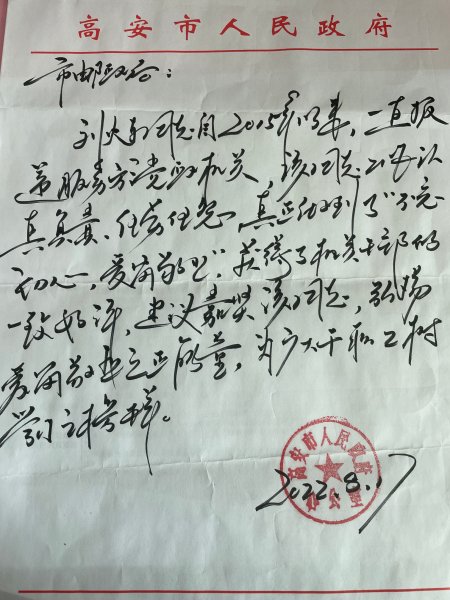 高安市人民政府
市邮政局：
刘火国同志自2015年以来，一直投
递服务市党政机关，该同志工作认
真负责、任劳任怨，真正做到了“不忘
初心，爱岗敬业”，获得了机关干部的
一致好评，建议嘉奖该同志，弘扬
爱岗敬业之正能量，为广大干职工树
学习之榜样。
高安市人民政府办公室
2022.8.17